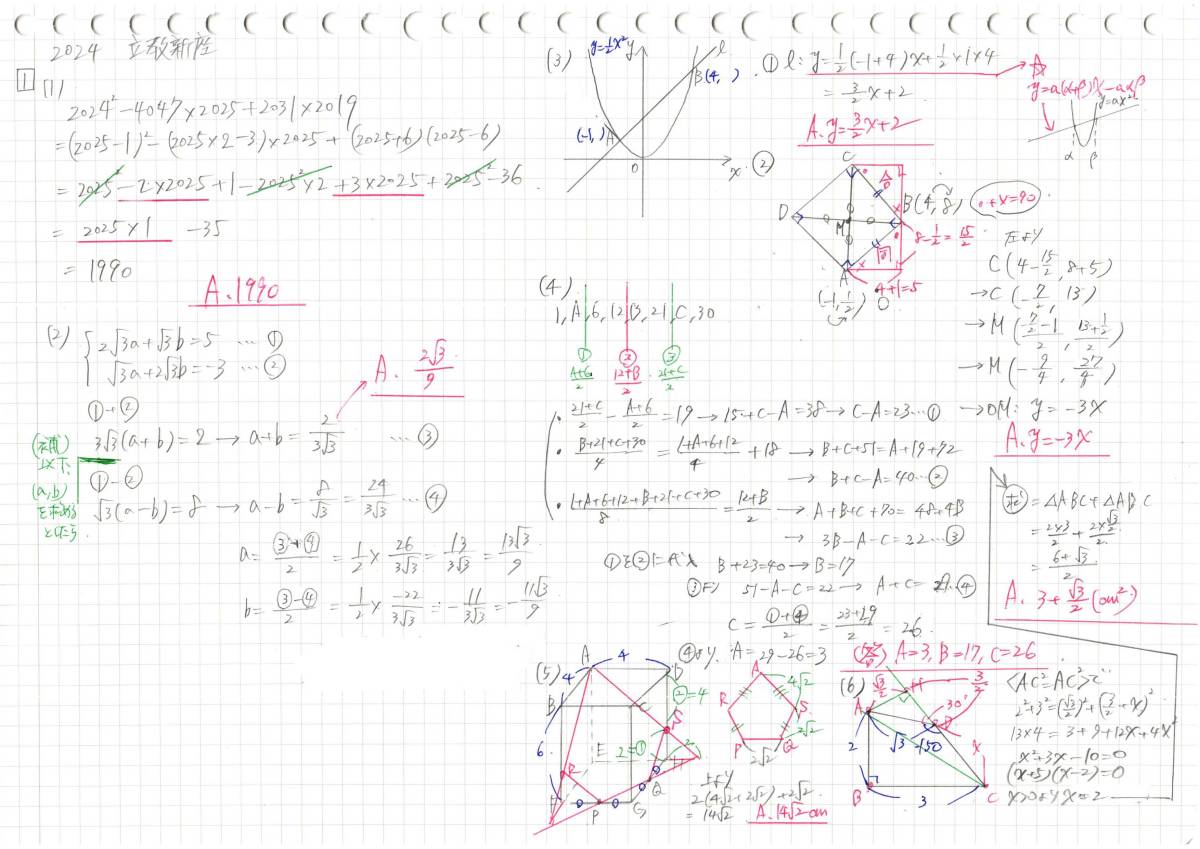 2024 立教新座
1
(1)
2024²-4047×2025+2031×2019
=(2025-1)²-(2025×2-3)×2025+(2025+6)(2025-6)
=2025²-2×2025+1-2025²×2+3×2025+2025²-36
=2025×1 -35
=1990
A. 1990
(2)
2√3a+√3b=5 … ①
√3a+2√3b=-3 … ②
①+②
3√3(a+b)=2 → a+b=2/3√3 … ③
A. 2√3/9
以下、
(a,b)
を求める
としたら
①-②
√3(a-b)=8 → a-b=8/√3=24/3√3 … ④
a=③+④/2=1/2×26/3√3=13/3√3=13√3/9
b=③-④/2=1/2×-22/3√3=-11/3√3=-11√3/9
(3)
y=½x²
y
l
B(4, )
(-1, )
A
O
x
① l: y=1/2(-1+4)x+1/2×1×4
=3/2x+2
A. y=3/2x+2
y=a(α+β)x-aαβ
y=ax²
α β
②
C
D
M
B(4, 8)
•+×=90
8-1/2=15/2
A
4+1=5
(-1, 1/2)
左より
C(4-15/2, 8+5)
→C(-7/2, 13)
→M(-7/2-1/2, 13+1/2/2)
→M(-9/4, 27/4)
→OM: y=-3x
A. y=-3x
(4)
1, A, 6, 12, B, 21, C, 30
① ② ③
A+6/2 12+B/2 21+C/2
・21+C/2-A+6/2=19→15+C-A=38→C-A=23…①
・B+21+C+30/4=1+A+6+12/4+18→B+C+51=A+19+72
→B+C-A=40…②
・1+A+6+12+B+21+C+30/8=12+B/2→A+B+C+70=48+4B
→3B-A-C=22…③
①を②に代入 B+23=40→B=17
③より 51-A-C=22→A+C=29…④
C=①+④/2=23+29/2=26
④より A=29-26=3
(答) A=3, B=17, C=26
(5)
A 4 D
4
B C
②=4
S
6
E
2=①
2
R
F P G Q
A
4√2
R S
2√2
P Q
2√2
上より
2(4√2+2√2)+2√2
=14√2
A. 14√2cm
(6)
√3/2
H
3/2
A
30°
D
2
√3
150
x
B 3 C
<AC²=AC²>で
2²+3²=(√3/2)²+(3/2+x)²
13×4=3+9+12x+4x²
x²+3x-10=0
(x+5)(x-2)=0
x>0よりx=2
求=△ABC+△ADC
=2×3/2+2×√3/2/2
=6+√3/2
A. 3+√3/2(cm²)